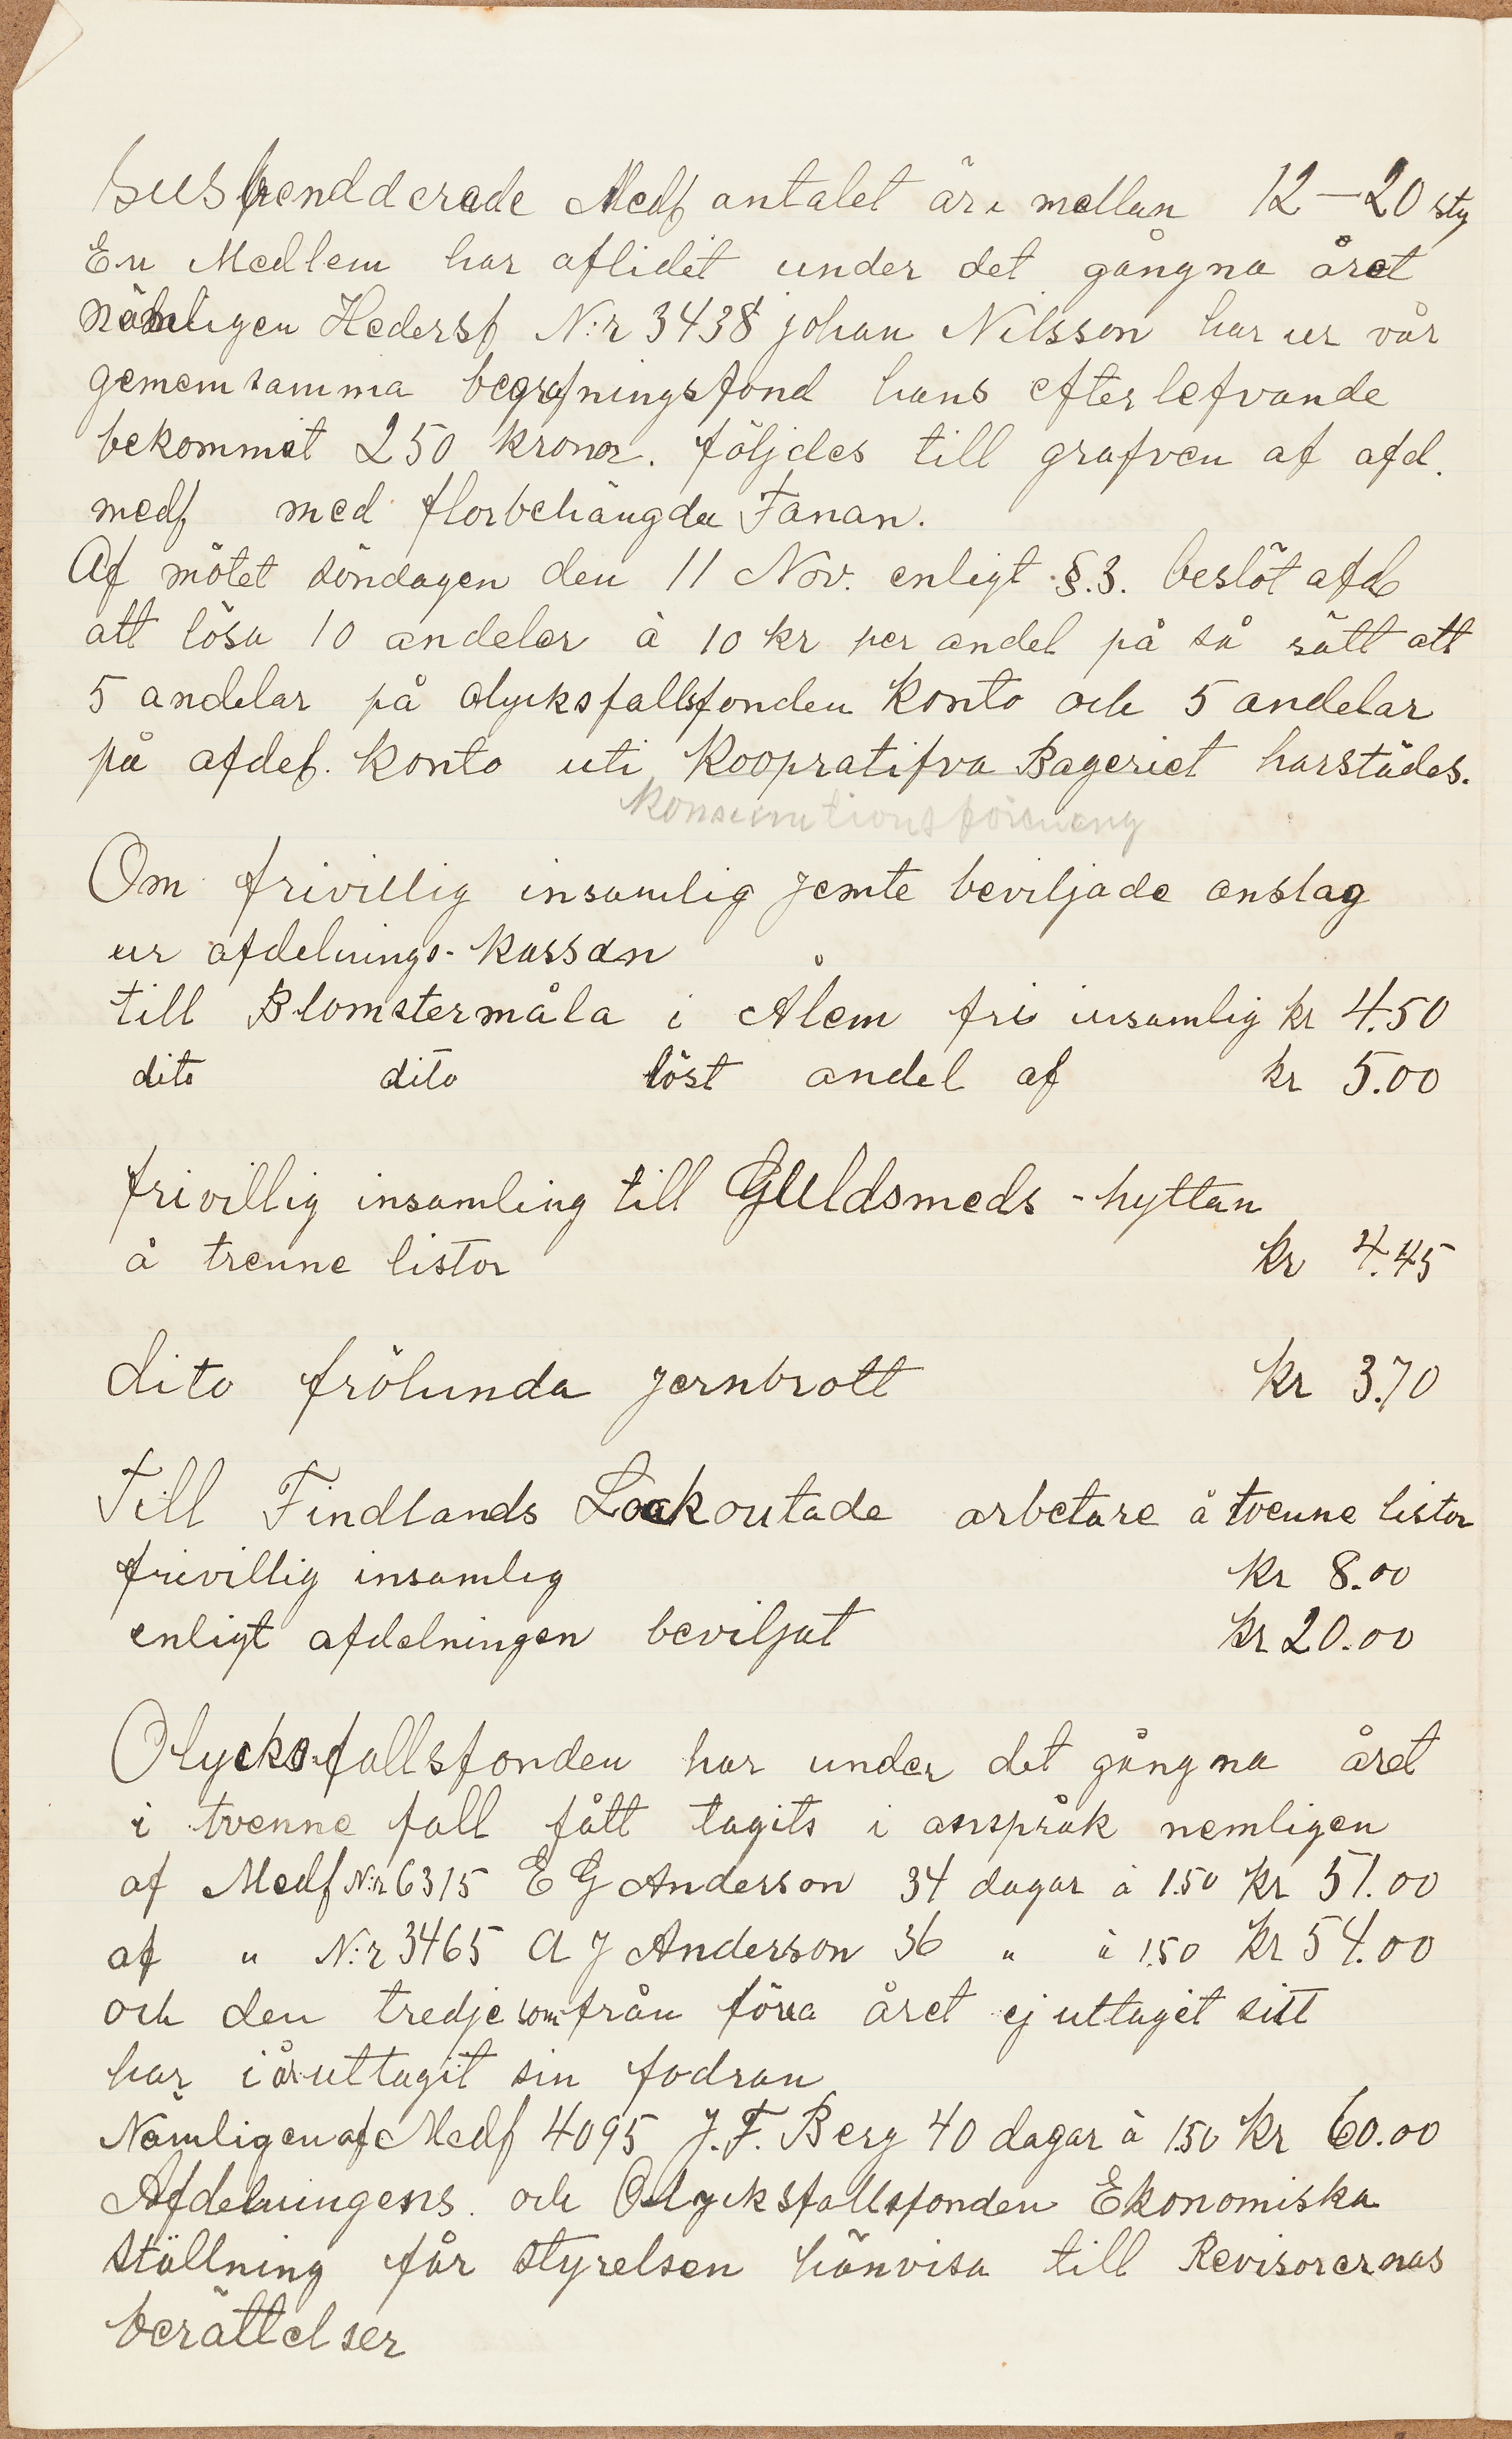 Suspendderade Medl antalet är mellan 12–20 sty
En Medlem har aflidit under det gångna året
nämligen Hedersl N:r 3438 johan Nilsson har ur vår
gemem samma begrafningsfond hans efterlefvande
bekommit 250 kronor. följdes till grafven af afd.
medl med florbehängda Fanan.
Af mötet söndagen den 11 Nov. enligt §.3. beslöt afd
att lösa 10 andelar à 10 kr per andel på så sätt att
5 andelar på olycksfallsfonden konto och 5 andelar
på afdel. konto uti Koopratifva Bageriet harstädes.
Konsumtionsförening
Om frivillig insamlig jemte beviljade anslag
ur afdelnings-kassan
till Blomstermåla i Ålem fri insamlig kr 4.50
dito dito löst andel af kr 5.00
frivillig insamling till Guldsmeds-hyttan
å trenne listor kr 4.45
dito frölunda jernbrott kr 3.70
Till Findlands Lockoutade arbetare å tvenne listor
frivillig insamlig kr 8.00
enligt afdelningen beviljat kr 20.00
Olycksfallsfonden har under det gångna året
i tvenne fall fått tagits i anspråk nemligen
af Medl N:r 6315 E G Anderson 34 dagar à 1.50 kr 51.00
af " N:r 3465 A J Anderson 36 " à 1.50 kr 54.00
och den tredje som från förra året ej uttagit sitt
har i år uttagit sin fodran
Nämligen af Medl 4095 J. F. Berg 40 dagar à 1.50 kr 60.00
Afdelningens och Olycksfallsfonden Ekonomiska
ställning får styrelsen hänvisa till Revisorernas
berättelser